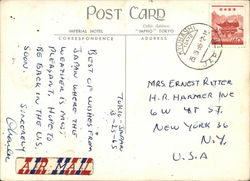 POST CARD
IMPERIAL HOTEL
Cable Address:
"IMPHO" TOKYO
CORRESPONDENCE
ADDRESS
TOKYO JAPAN
BEST OF WISHES FROM
JAPAN WHERE THE
WEATHER IS MOST
PLEASANT. HOPE TO
BE BACK IN THE U.S.
SOON.
SINCERELY
AIR MAIL
MRS. ERNEST RUTTER
H.R. HARMER INC
6 W 48 ST.
NEW YORK 36
N.Y.
U.S.A